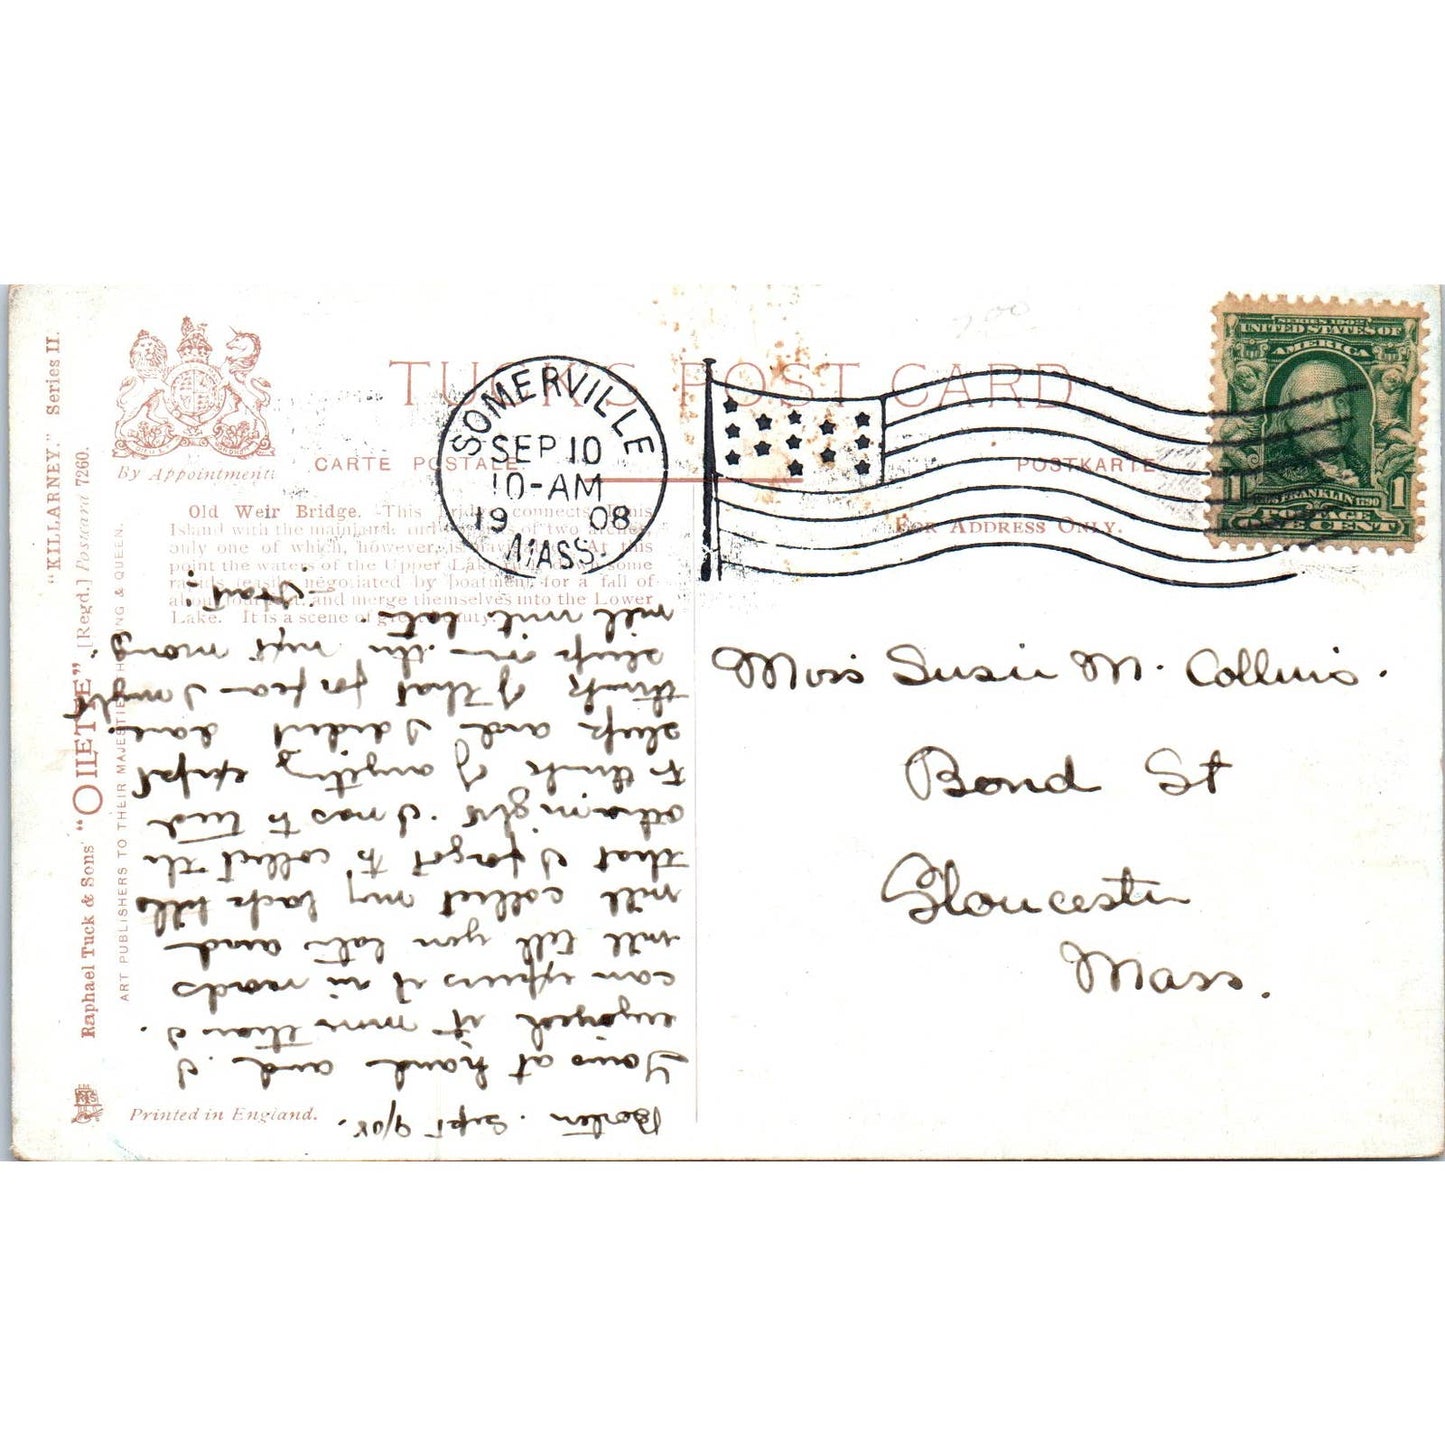 "KILLARNEY." Series II.
Raphael Tuck & Sons' "OILETTE" [Regd.] Postcard 7260.
ART PUBLISHERS TO THEIR MAJESTIES THE KING & QUEEN.
By Appointment.
TUCK'S POST CARD
CARTE POSTALE
POSTKARTE
FOR ADDRESS ONLY.
SOMERVILLE
SEP 10
10-AM
1908
MASS.
SERIES 1902
UNITED STATES OF
AMERICA
FRANKLIN
POSTAGE
1 ONE CENT 1
Old Weir Bridge. This bridge connects Dinis
Island with the mainland and consists of two arches,
only one of which, however, is navigable. At this
point the waters of the Upper Lake some
rapids (easily negotiated by boatmen) for a fall of
about four feet, and merge themselves into the Lower
Lake. It is a scene of great beauty.
Printed in England.
Boston. Sept 9/08.
Yours at hand and I
enjoyed it more than I
can express it in words
will tell you later and
will collect my back bills
that I forgot to collect the
other night. I was to tired
to think of anything except
sleep and I didn't dare
think of that for fear I might
sleep on the next morng.
will write later
Miss Susie M. Collins.
Bond St
Gloucester
Mass.